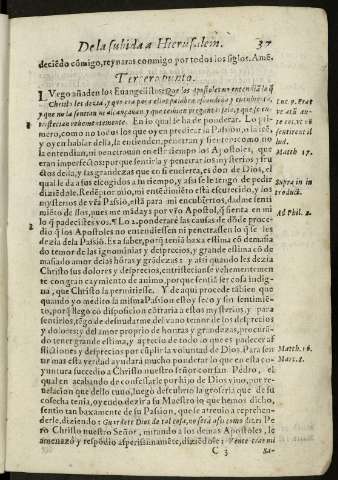 De la subida a Hierusalem. 37
deciẽdo cõmigo, reynaras conmigo por todos los siglos. Amẽ.
Tercero punto.
LVego añaden los Euangelistas, que los Apostoles no entendiã lo q̃
Christo les dezia, y que era para ellos palabra
y que no la sentian ni alcançauan y que temian preguntarselo, y que se en-
tristecian vehementemente. En lo qual se ha de põderar. Lo pri-
mero, como no todos los que oyen predicar la Passion, o la leẽ,
y oyen hablar della, la entienden, penetran y sienten: como no
la entendian, ni penetrauan en este tiempo los Apostoles, que
eran imperfectos: porque sentirla y penetrar los mysterios y fru
ctos della, y las grandezas que en si encierra, es don de Dios, el
qual le da a sus escogidos a su tiempo, y assi se le tengo de pedir
diziẽdole, Señor mio, mi entẽdimiẽto està escurecido, y los
mysterios de vr̃a Passiõ, està para mi encubiertos, dadme senti
miẽto de ssos, pues me mãdays por vr̃o Apostol, q̃ sienta en mi
lo q̃ padecistes vos. Lo 2. põderarè las causas de dõde proce-
dio q̃ los Apostoles no entendiessen ni penetrassen lo q̃ se les
dezia de la Passiõ. Es a saber, porq̃ tenia baxa estima cõ demasia
do temor de las ignominias y desprecios, y grande estima cõ de
masiado amor de las hõras y grãdezas: y assi quando les dezia
Christo sus dolores y desprecios, entristecianse vehementemen
te con gran caymiento de animo, porque sentiã ser cosa indig-
na, que Christo la permitiesse. Y de aqui procede tãbien que
quando yo medito la misma Passion estoy seco y sin sentimiẽ-
to, porq̃ llego cõ disposicion cõtraria a estos mysterios, y para
sentirlos, tẽgo de desnudarme del vano temor de los desprecios
y dolores: y del amor proprio de honras y grandezas, procurã-
do tener grande estima, y aprecio de todo lo que es padecer af
flictiones y desprecios por cũplir la voluntad de Dios. Para sen
tir mas esta verdad ayudarà mucho ponderar lo que en esta co-
yuntura succedio a Christo nuestro señor con san Pedro, el
qual en acabando de confessarle por hijo de Dios viuo, por re-
uelacion que dello tuuo, luego descubrio la groseria que de su
cosecha tenia, oyendo dezir a su Maestro lo que hemos dicho,
sentio tan baxamente de su Passion, que se atreuio a reprehen-
derle, diziendo: Guardete Dios de tal cosa, no serà assi como dizes. Pe
ro Christo nuestro Señor, mirando a los demas Apostoles, le
amenazò y respõdio asperissimamẽte, diziẽdole: Vente tras mi
C 3 Sa-
Luc. 9. Erat
sentirent il
lud.
Matth. 17.
Supra in in
troducti.
Ad Phil. 2.
Matth. 16.
Marc. 8.